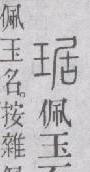 琚佩玉
佩玉名。按雜